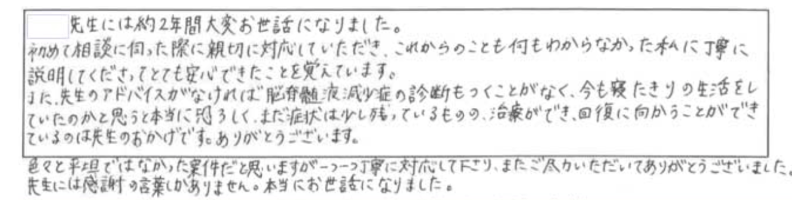 先生には約2年間大変お世話になりました。
初めて相談に伺った際に親切に対応していただき、これからのことも何もわからなかった私に丁寧に
説明してくださってとても安心できたことを覚えています。
また、先生のアドバイスがなければ脳脊髄液減少症の診断もつくことがなく、今も寝たきりの生活をし
ていたのかと思うと本当に恐ろしく、まだ症状は少し残っているものの、治療ができ、回復に向かうことができ
ているのは先生のおかげです。ありがとうございます。
色々と平坦ではなかった案件だと思いますが一つ一つ丁寧に対応して下さり、またご尽力いただいてありがとうございました。
先生には感謝の言葉しかありません。本当にお世話になりました。